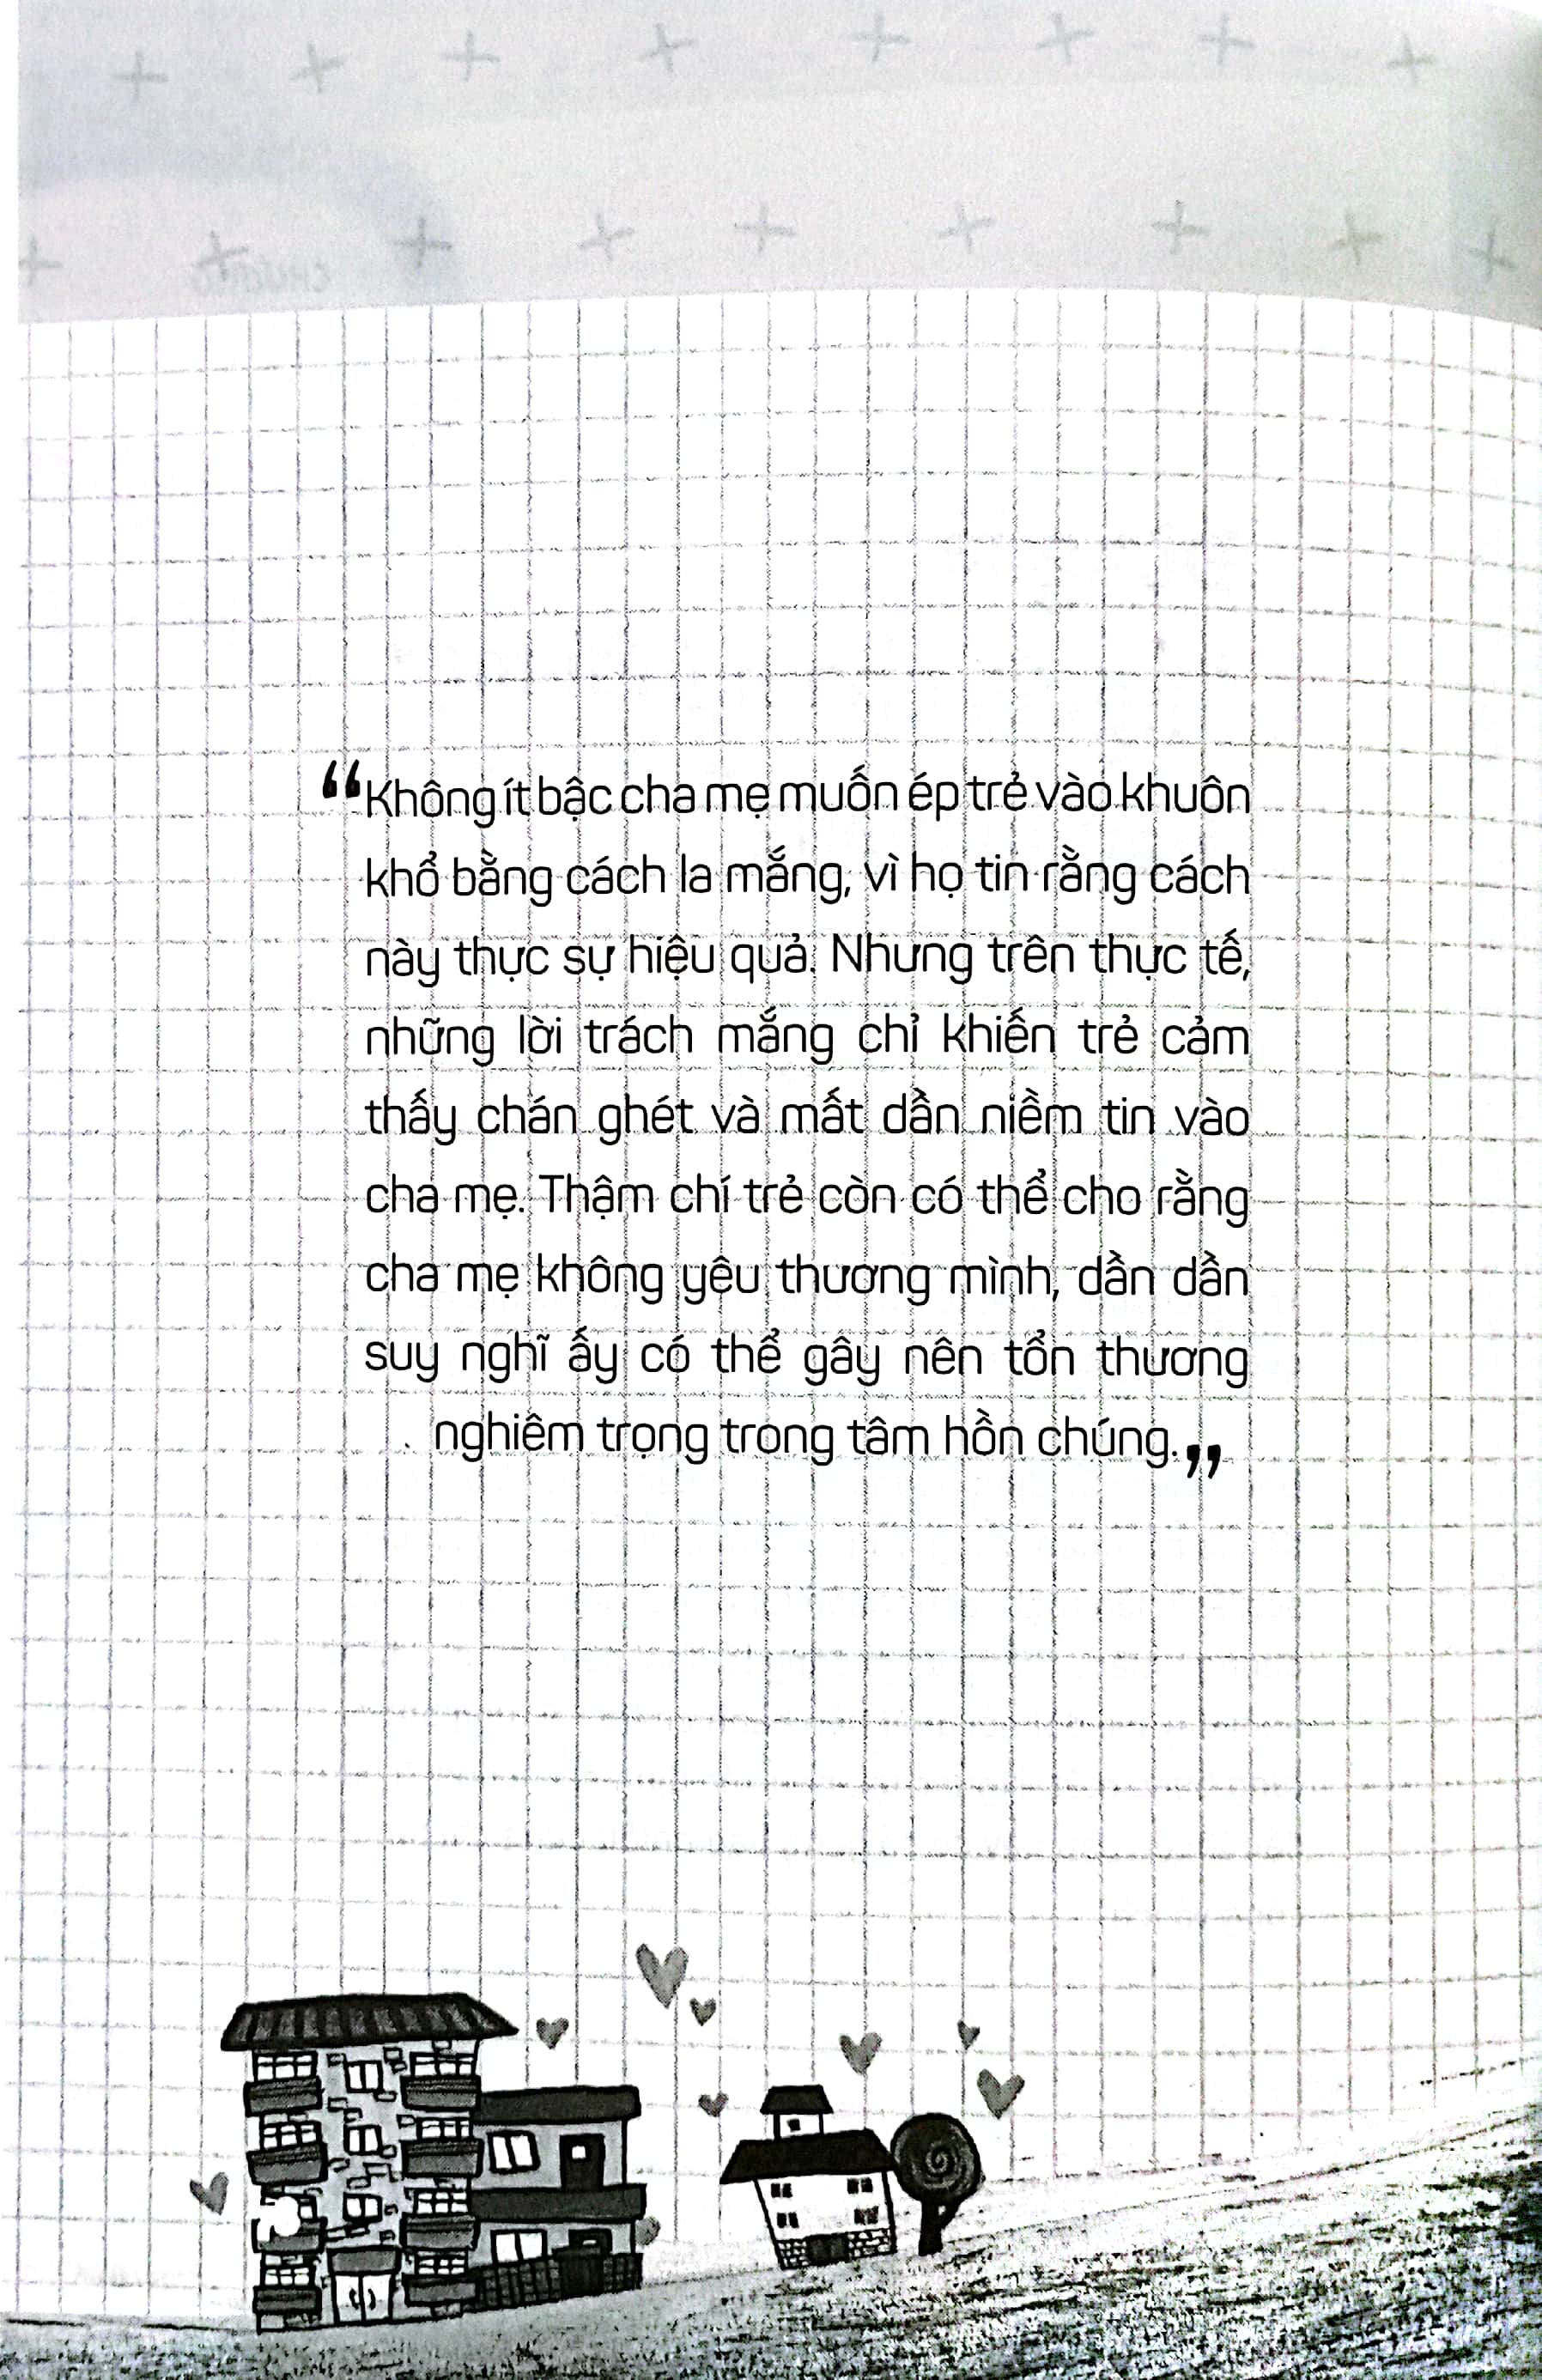 “Không ít bậc cha mẹ muốn ép trẻ vào khuôn
khổ bằng cách la mắng, vì họ tin rằng cách
này thực sự hiệu quả. Nhưng trên thực tế,
những lời trách mắng chỉ khiến trẻ cảm
thấy chán ghét và mất dần niềm tin vào
cha mẹ. Thậm chí trẻ còn có thể cho rằng
cha mẹ không yêu thương mình, dần dần
suy nghĩ ấy có thể gây nên tổn thương
nghiêm trọng trong tâm hồn chúng.”